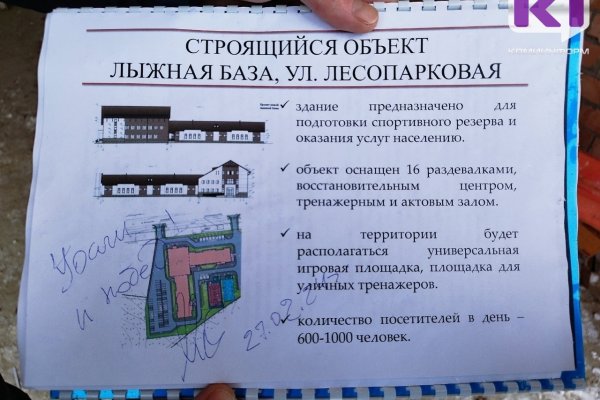 КОМИИНФОРМ
СТРОЯЩИЙСЯ ОБЪЕКТ
ЛЫЖНАЯ БАЗА, УЛ. ЛЕСОПАРКОВАЯ
✓ здание предназначено для
подготовки спортивного резерва и
оказания услуг населению.
✓ объект оснащен 16 раздевалками,
восстановительным центром,
тренажерным и актовым залом.
✓ на территории будет
располагаться универсальная
игровая площадка, площадка для
уличных тренажеров.
✓ количество посетителей в день –
600-1000 человек.
и побед
27.02.